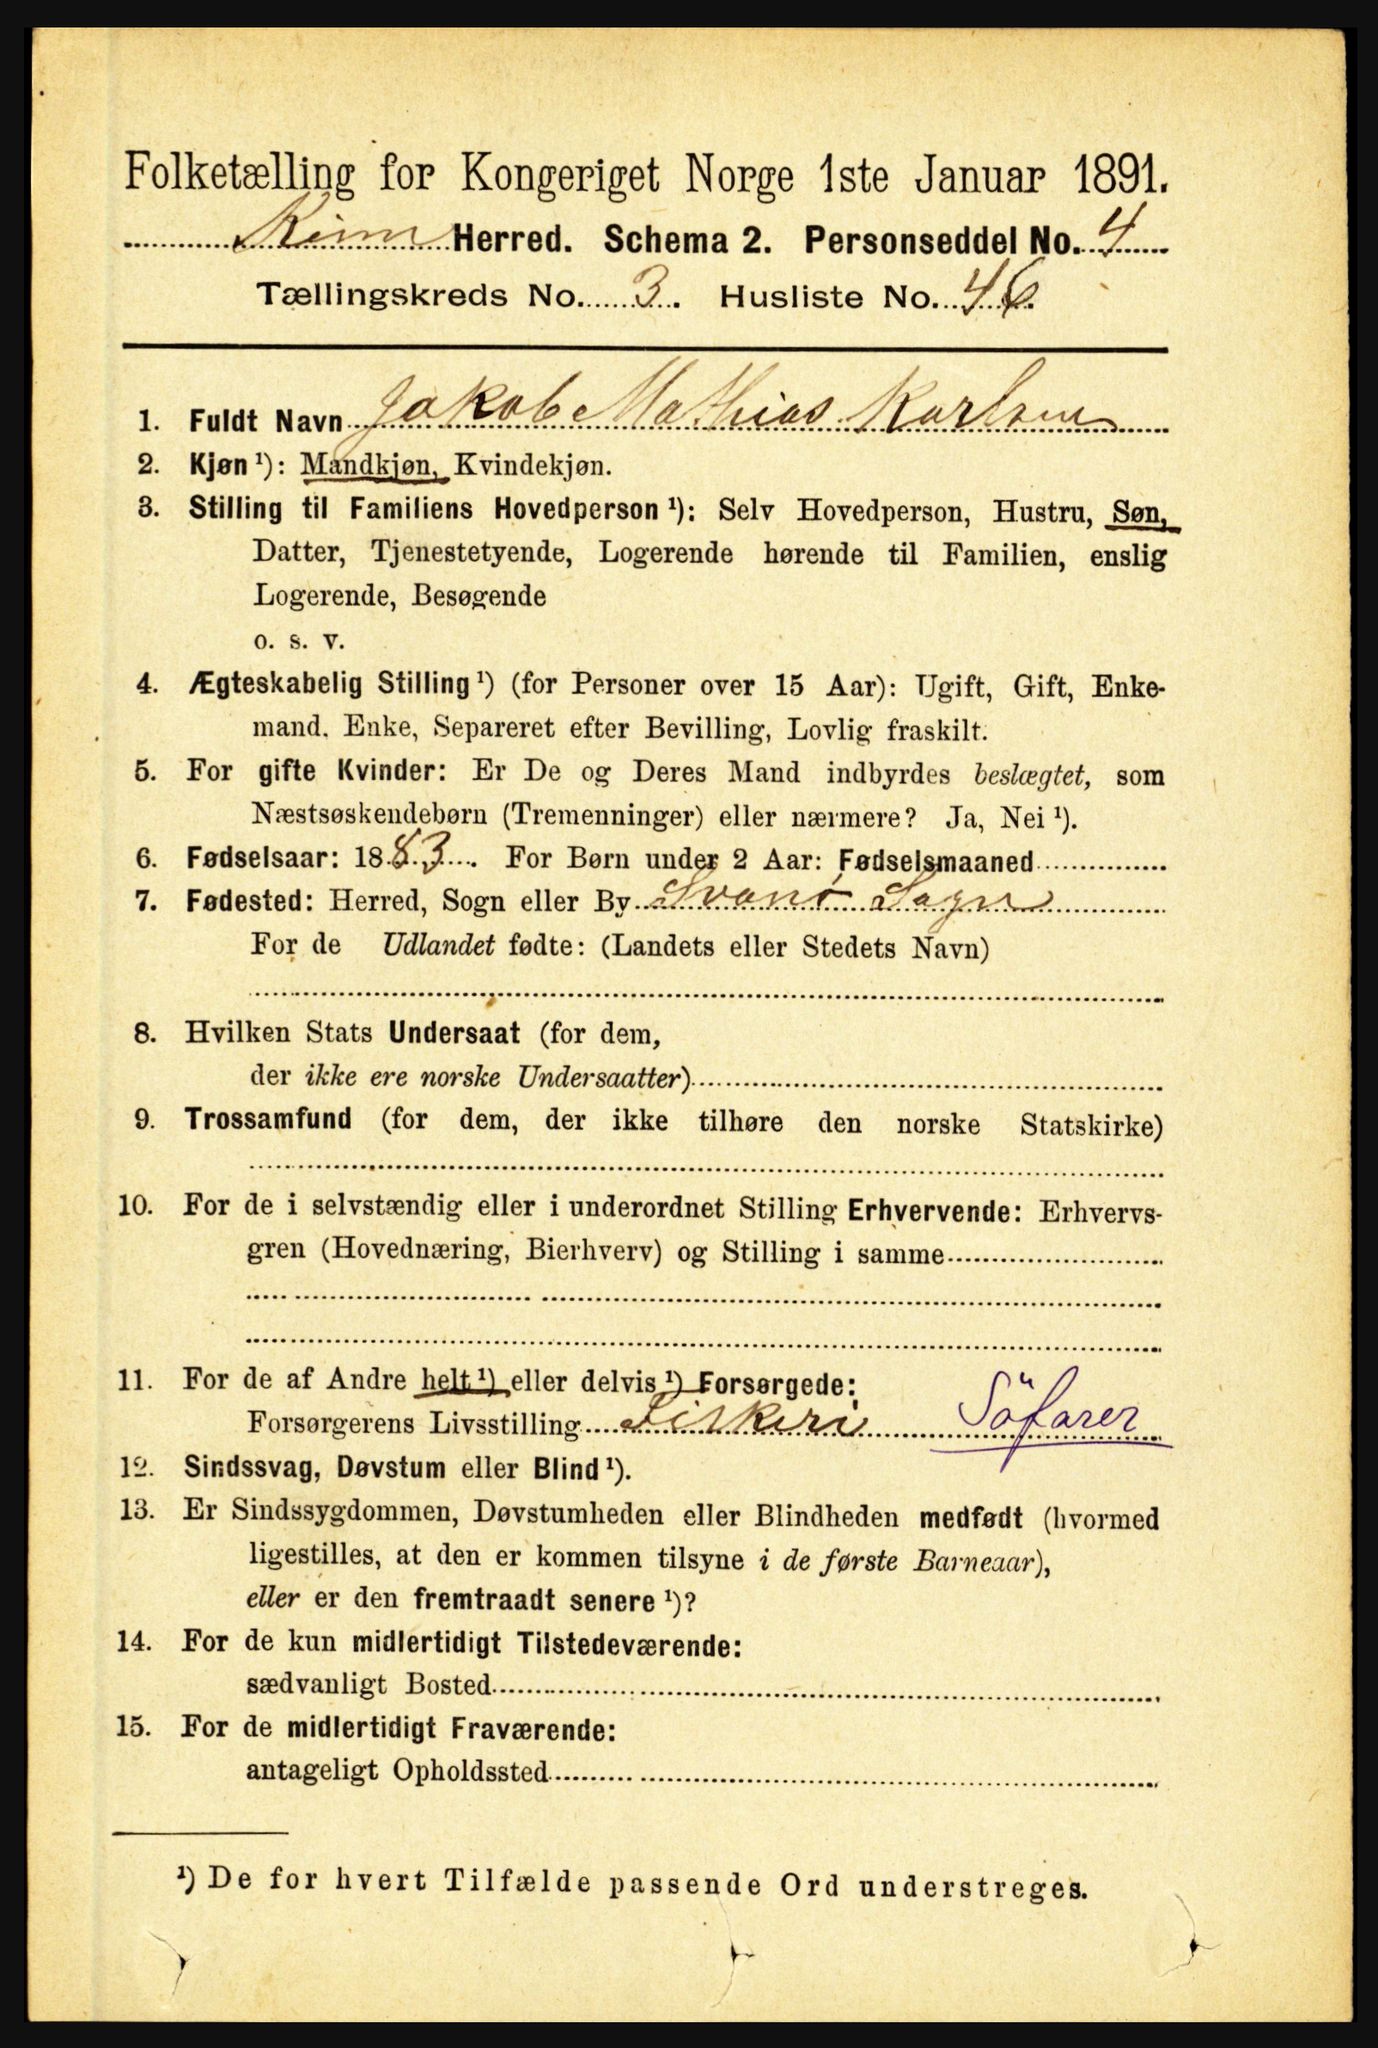 Folketælling for Kongeriget Norge 1ste Januar 1891.
Kinn Herred. Schema 2. Personseddel No. 4
Tællingskreds No. 3. Husliste No. 46
1. Fuldt Navn Jakob Mathias Karlsen
2. Kjøn ¹): Mandkjøn, Kvindekjøn.
3. Stilling til Familiens Hovedperson ¹): Selv Hovedperson, Hustru, Søn,
Datter, Tjenestetyende, Logerende hørende til Familien, enslig
Logerende, Besøgende
o. s. v.
4. Ægteskabelig Stilling ¹) (for Personer over 15 Aar): Ugift, Gift, Enke-
mand. Enke, Separeret efter Bevilling, Lovlig fraskilt.
5. For gifte Kvinder: Er De og Deres Mand indbyrdes beslægtet, som
Næstsøskendebørn (Tremenninger) eller nærmere? Ja, Nei ¹).
6. Fødselsaar: 1883. For Børn under 2 Aar: Fødselsmaaned
7. Fødested: Herred, Sogn eller By Svanø Sogn
For de Udlandet fødte: (Landets eller Stedets Navn)
8. Hvilken Stats Undersaat (for dem,
der ikke ere norske Undersaatter)
9. Trossamfund (for dem, der ikke tilhøre den norske Statskirke)
10. For de i selvstændig eller i underordnet Stilling Erhvervende: Erhvervs-
gren (Hovednæring, Bierhverv) og Stilling i samme
11. For de af Andre helt ¹) eller delvis ¹) Forsørgede:
Forsørgerens Livsstilling Fiskeri Söfarer
12. Sindssvag, Døvstum eller Blind ¹).
13. Er Sindssygdommen, Døvstumheden eller Blindheden medfødt (hvormed
ligestilles, at den er kommen tilsyne i de første Barneaar),
eller er den fremtraadt senere ¹)?
14. For de kun midlertidigt Tilstedeværende:
sædvanligt Bosted
15. For de midlertidigt Fraværende:
antageligt Opholdssted
¹) De for hvert Tilfælde passende Ord understreges.